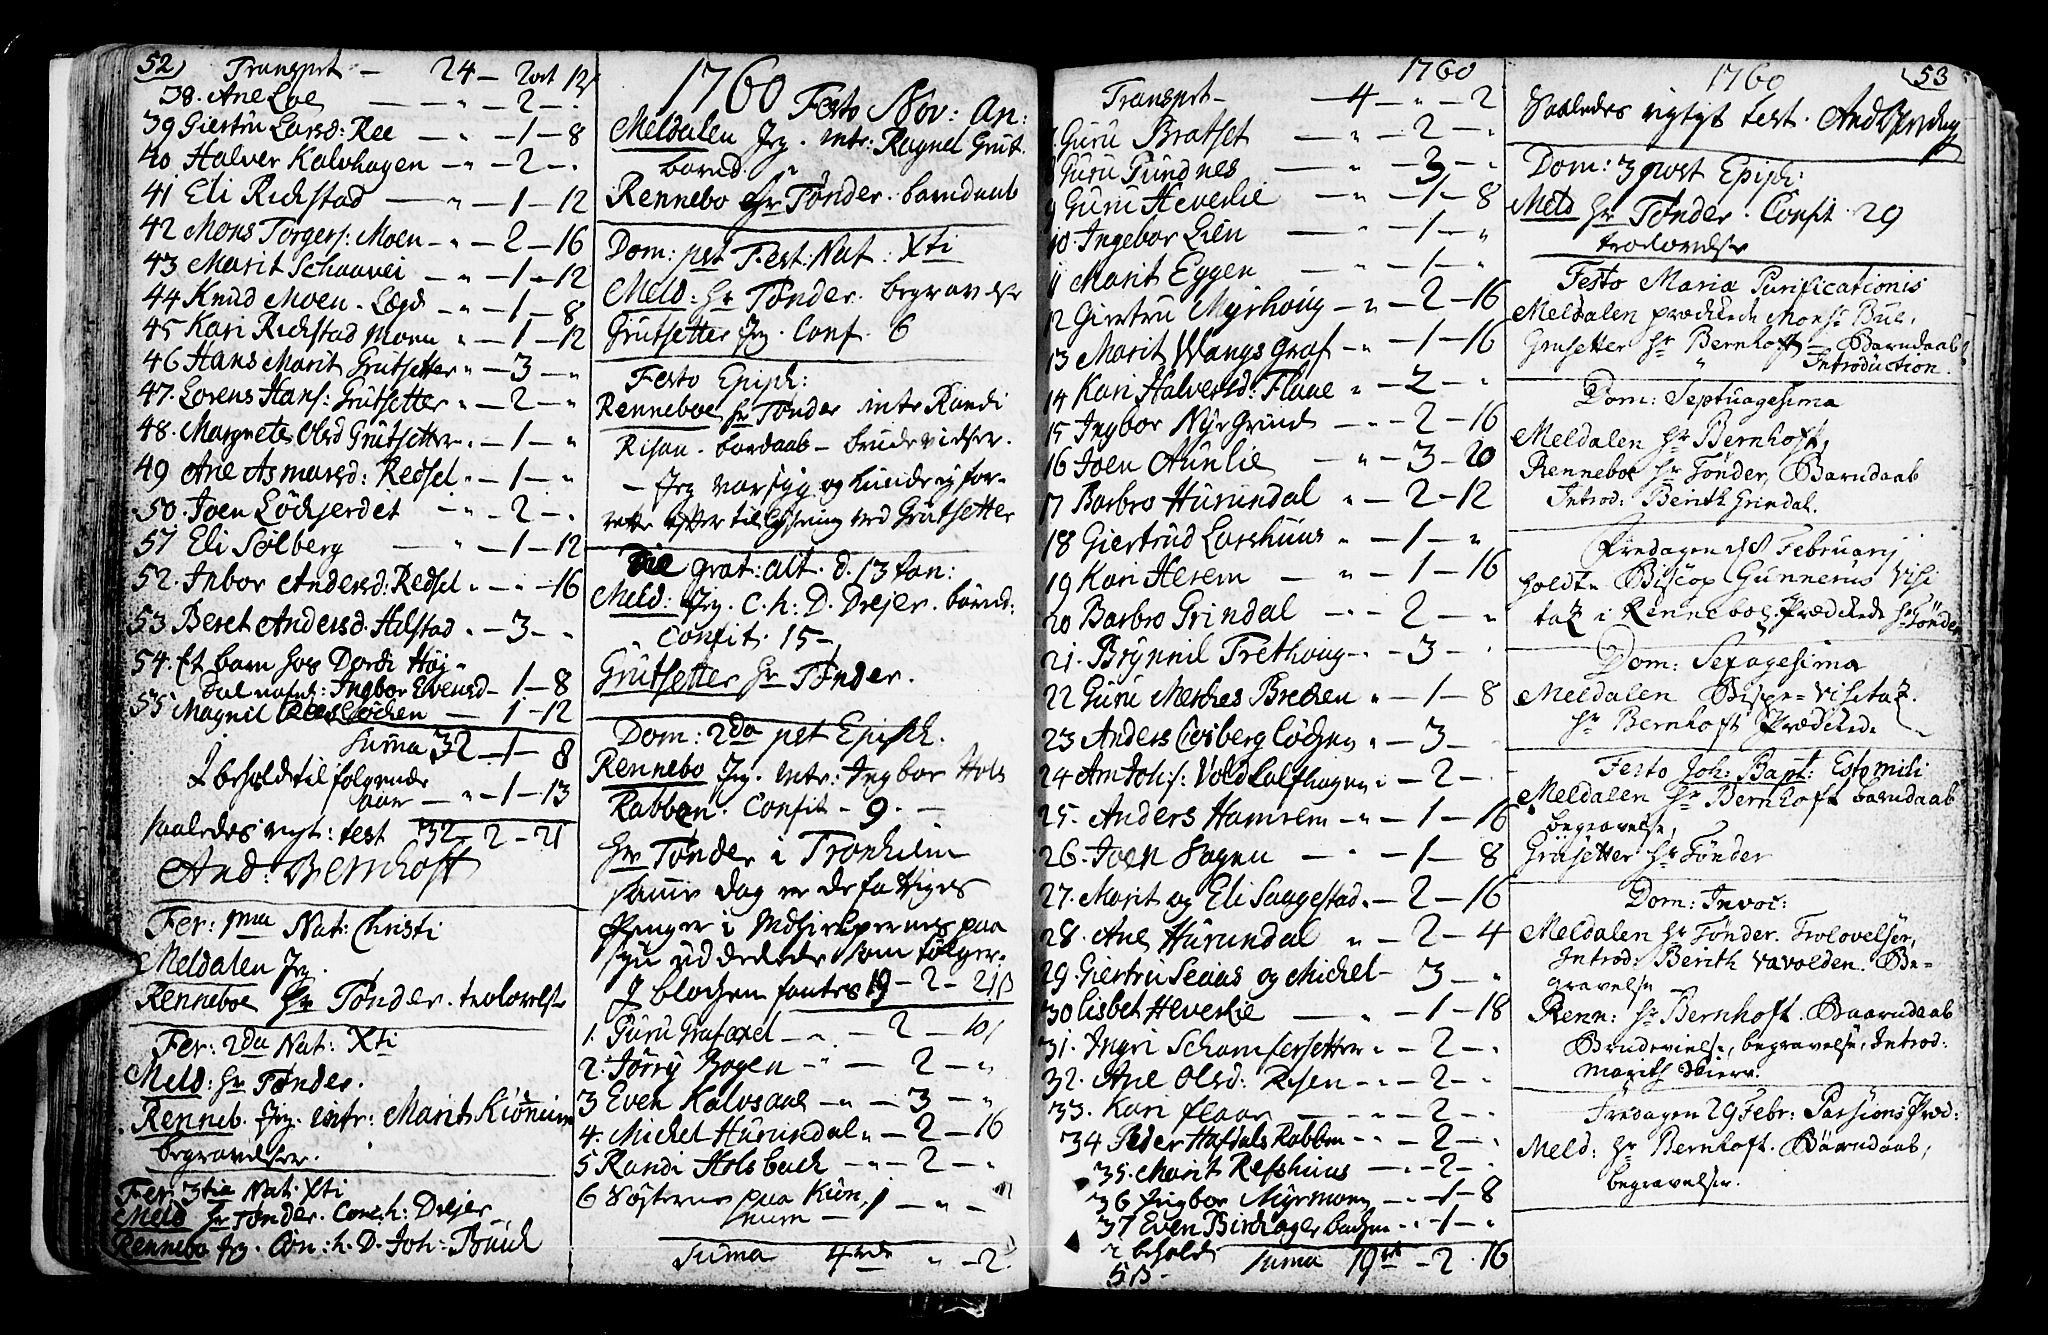 52)
Transport - 24 - 2 ort 12 ß
38. Ane Loe - " - 2 - "
39 Giertru Larsd: Ree - " - 1 - 8
40 Halver Kalvhagen - " - 2 - "
41 Eli Rickstad - " - 1 - 12
42 Mons Torgers: Moen - " - 2 - 16
43 Marit Schaavei - " - 1 - 12
44 Knud Moen. Lægd - " - 1 - 8
45 Kari Rickstad Moen " - 1 - 12
46 Hans Marit Grutsetter " - 3 - "
47. Lorens Hans: Grutsetter " - 2 - "
48. Margrete Olsd Grutsetter " - 1 - "
49 Ane Asmarsd: Redsel " - 1 - "
50. Joen Lödsjerdet " - 2 - "
51 Eli Solberg - " - 1 - 12
52. Inbor Andersd: Redsel " - " - 16
53 Beret Andersd. Hilstad " - 3 - "
54. Et barn hos Dordi Höj-
dal nafnl: Ingbor Evensd - 1 - 8
55 Magnil Löcken - 1 - 12
Summa 32 - 1 - 8
I behold til folgende
aar - " - 1 - 13
saaledes rigt: test 32 - 2 - 21
And: Bernhoft
Fer: 1ma Nat: Christi
Meldalen Jeg.
Renneboe Hr Tønder. trolovelse
Fer: 2da Nat: Xti
Meld: Hr Tønder.
Renneb. Jeg. intr: Marit Kiönnien
begravelser.
Fer 3tia Nat: Xti
Meld Hr Tønder. Conc: h: Drejer
Rennebo Jeg. Con: h. D. Joh: Buch
1760
Festo Nov: An:
Meldalen Jeg. intr: Ragnel Grut.
barnd.
Rennebo Hr Tønder. barndaab
Dom: pst Fest: Nat: Xti
Meld: Hr Tønder. begravelse
Grutsetter Jeg. Conf. 6
Festo Epiph:
Renneboe Hr Tønder intr Randi
Risan. bardaab - brudevielser.
- Jeg var syg og kunde ej for-
rette efter tillysning ved Grutsetter
Die grat: alt. d. 13 Jan:
Meld: Jeg. C. h: D. Drejer. barnd:
Confit. 15 -
Grutsetter Hr Tønder.
Dom: 2da pst Epiph.
Rennebo Jeg. intr: Ingbor Hols
Rabben. Confit - 9. -
Hr Tønder i Tronhiem
samme dag er de fattiges
Penger i Meldalens paa
syn uddelede som følger.
I blocken fantes 19 - 2 - 21 ß
1. Guru - 2 - 10
2. Jörry Bogen " - 2 - "
3 Even Kalvsaae " - 3 - "
4. Michel Hurundal " - 2 - 16
5 Randi Holsbach - " - 2 - "
6 Söstrene paa Kiön
- 1 - " - "
Suma 4rdr " - 2
1760
Transprt - 4 - " - 2
7. Guru Bratset - " - 2 - "
8 Guru Pundnes - " - 3 - "
9 Guru Heverlie - " - 1 - 8
10. Ingebor Lien - " - 1 - "
11 Marit Eggen - " - 1 - "
12 Giertru Myrhoug - " - 2 - 16
13 Marit Wangsgraf - " - 1 - 16
14 Kari Halversd: Flaae " - 2 - "
15 Ingbor Nyegrund - " - 2 - 16
16 Joen Aunlie - " - 3 - 20
17 Barbro Hurundal " - 2 - 12
18 Giertrud Larshuus " - 1 - "
19 Kari Herem - " - 1 - 16
20 Barbro Grindal - " - 2 - "
21. Brynnil Trethoug - " - 3 - "
22 Guru Merches Brecken " - 1 - 8
23 Anders Casberg Löchen " - 3 - "
24 Am Johs: Vold Kalfhagen " - 2 - "
25. Anders Hamrem - " - 1 - 16
26. Joen Hagen - " - 1 - 8
27. Marit og Eli Saugestad " - 2 - 16
28. Ane Hurundal " - 2 - 4
29. Giertru Seaas og Michel - 3 - "
30 Lisbet Heverlie - " - 1 - 18
31. Ingri Schamfersetter " - 2 - "
32. Ane Olsd: Risen - " - 2 - "
33. Kari flaae - " - 2 - "
34 Peder Hafdals Rabben - " - 2 - "
35. Marit Refshuus - " - 2 - "
36 Ingbor Myrmoen - " - 1 - 8
37 Even Birchager bachen - " - 1 - "
I behold Suma 19rd - 2 - 16
5 ß -
1760
53
Saaledes rigtigt test. And Bernhoft
Dom: 3 post Epiph:
Meld Hr Tønder. Confit. 29
trolovelse
Festo Mariæ Purificationis
Meldalen prædikede Monsr Bull.
Grusetter Hr Bernhoft - Barndaab
" Introduction.
Dom: Septuagesima
Meldalen Hr Bernhoft,
Renneboe Hr Tønder, Barndaab
Introd: Berith Grindal.
Fredagen d: 8 February
holdt Biscop Gunnerus Visi
tatz i Renneboe. Prædikede Hr Tønder
Dom: Sexagesima
Meldalen Bispe-Visitatz.
Hr Bernhoft Prædikede
Festo Joh: Bapt: Estomihi
Meldalen Hr Bernhoft barndaab
begravelse,
Grusetter Hr Tønder
Dom: Invoc:
Meldalen Hr Tønder. Trolovelser,
Introd: Berith Vavolden. Be-
gravelse
Renn: Hr Bernhoft. Baarndaab
Brudevielse, begravelse, Introd:
Marith Skierv.
Fredagen 29 Febr: Passions Præd:
Meld: Hr Bernhoft. Barndaab,
begravelser.